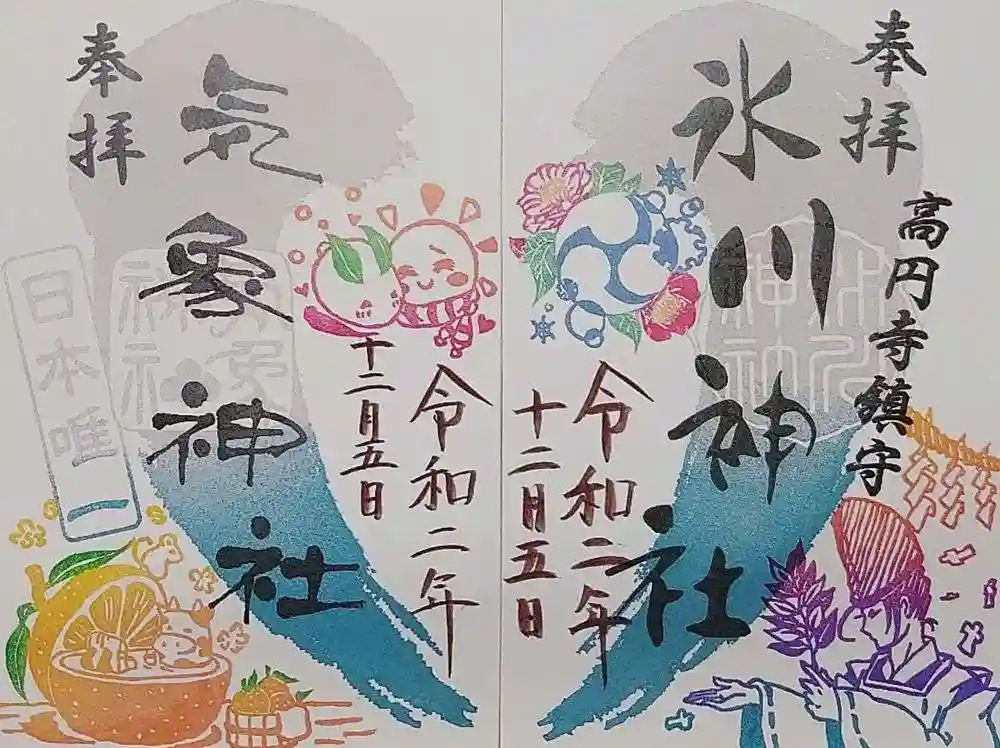 高円寺鎮守
奉拝
氷川神社
令和二年
十二月五日
奉拝
気象神社
日本唯一
令和二年
十二月五日